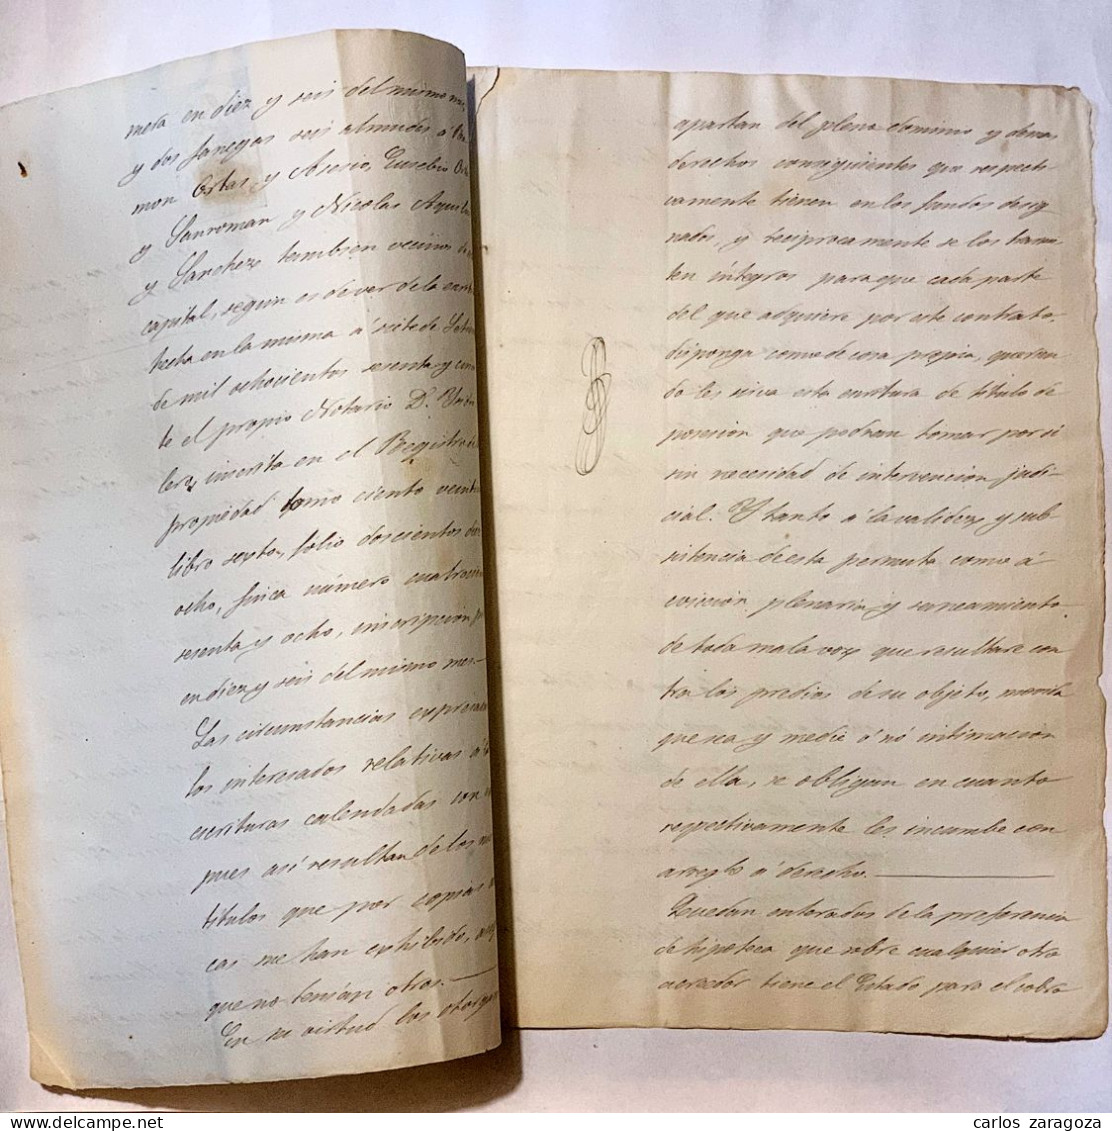 mera en diez y seis del mismo mes,
y dos fanegas seis almudes á
mon Ortas y Asesio, Eusebio
y Sanroman y Nicolas
y Sanchez tambien vecinos de
capital, segun es de ver de la
hecha en la misma á siete de
de mil ochocientos sesenta y
te el propio Notario D.
lera, inscrita en el Registro de
propiedad tomo ciento
libro sexto, folio doscientos
ocho, finca número
sesenta y ocho, inscripcion
en diez y seis del mismo mes.—
Las circunstancias
los interesados relativas á
escrituras calendadas son
pues así resultan de los
títulos que por copias
cas me han exhibido,
que no tenían otros.—
En su virtud los
apartan del pleno dominio y demas
derechos consiguientes que respecti-
vamente tienen en los fundos desig-
nados, y recíprocamente se los
ten íntegros para que cada parte
del que adquiere por este contrato,
disponga como de cosa propia, querien-
do les sirva esta escritura de título de
posesion que podran tomar por si
sin necesidad de intervencion judi-
cial. Y tanto á la validez y sub-
sistencia de esta permuta como á
eviccion plenaria y saneamiento
de toda mala voz que resultare con
tra los predios de su objeto, movida
que sea y medie ó nó intimacion
de ella, se obligan en cuanto
respectivamente les incumbe con
arreglo á derecho.—
Quedan enterados de la preferencia
de hipoteca que sobre cualquier otro
acreedor tiene el Estado para el cobro
carlos zaragoza